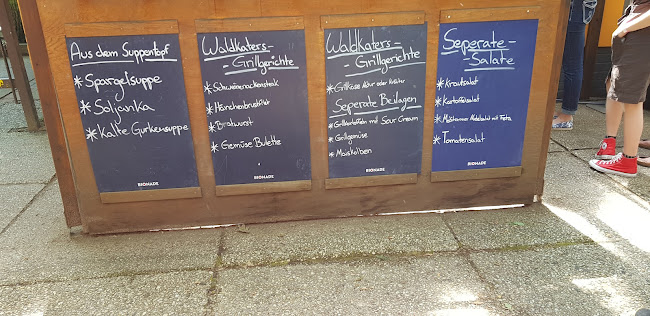 Aus dem Suppentopf
* Spargelsuppe
* Soljanka
* Kalte Gurkensuppe
BIONADE
Waldkaters-
-Grillgerichte
* Schweinenackensteak
* Hänchenbrustfilet
* Bratwurst
* Gemüse Bulette
BIONADE
Waldkaters-
-Grillgerichte
* Grillkäse Natur oder Kräuter
Seperate Beilagen
* Grillkartoffeln mit Sour Cream
* Grillgemüse
* Maiskolben
BIONADE
Seperate-
-Salate
* Krautsalat
* Kartoffelsalat
* Nudelsalat mit Feta
* Tomatensalat
BIONADE